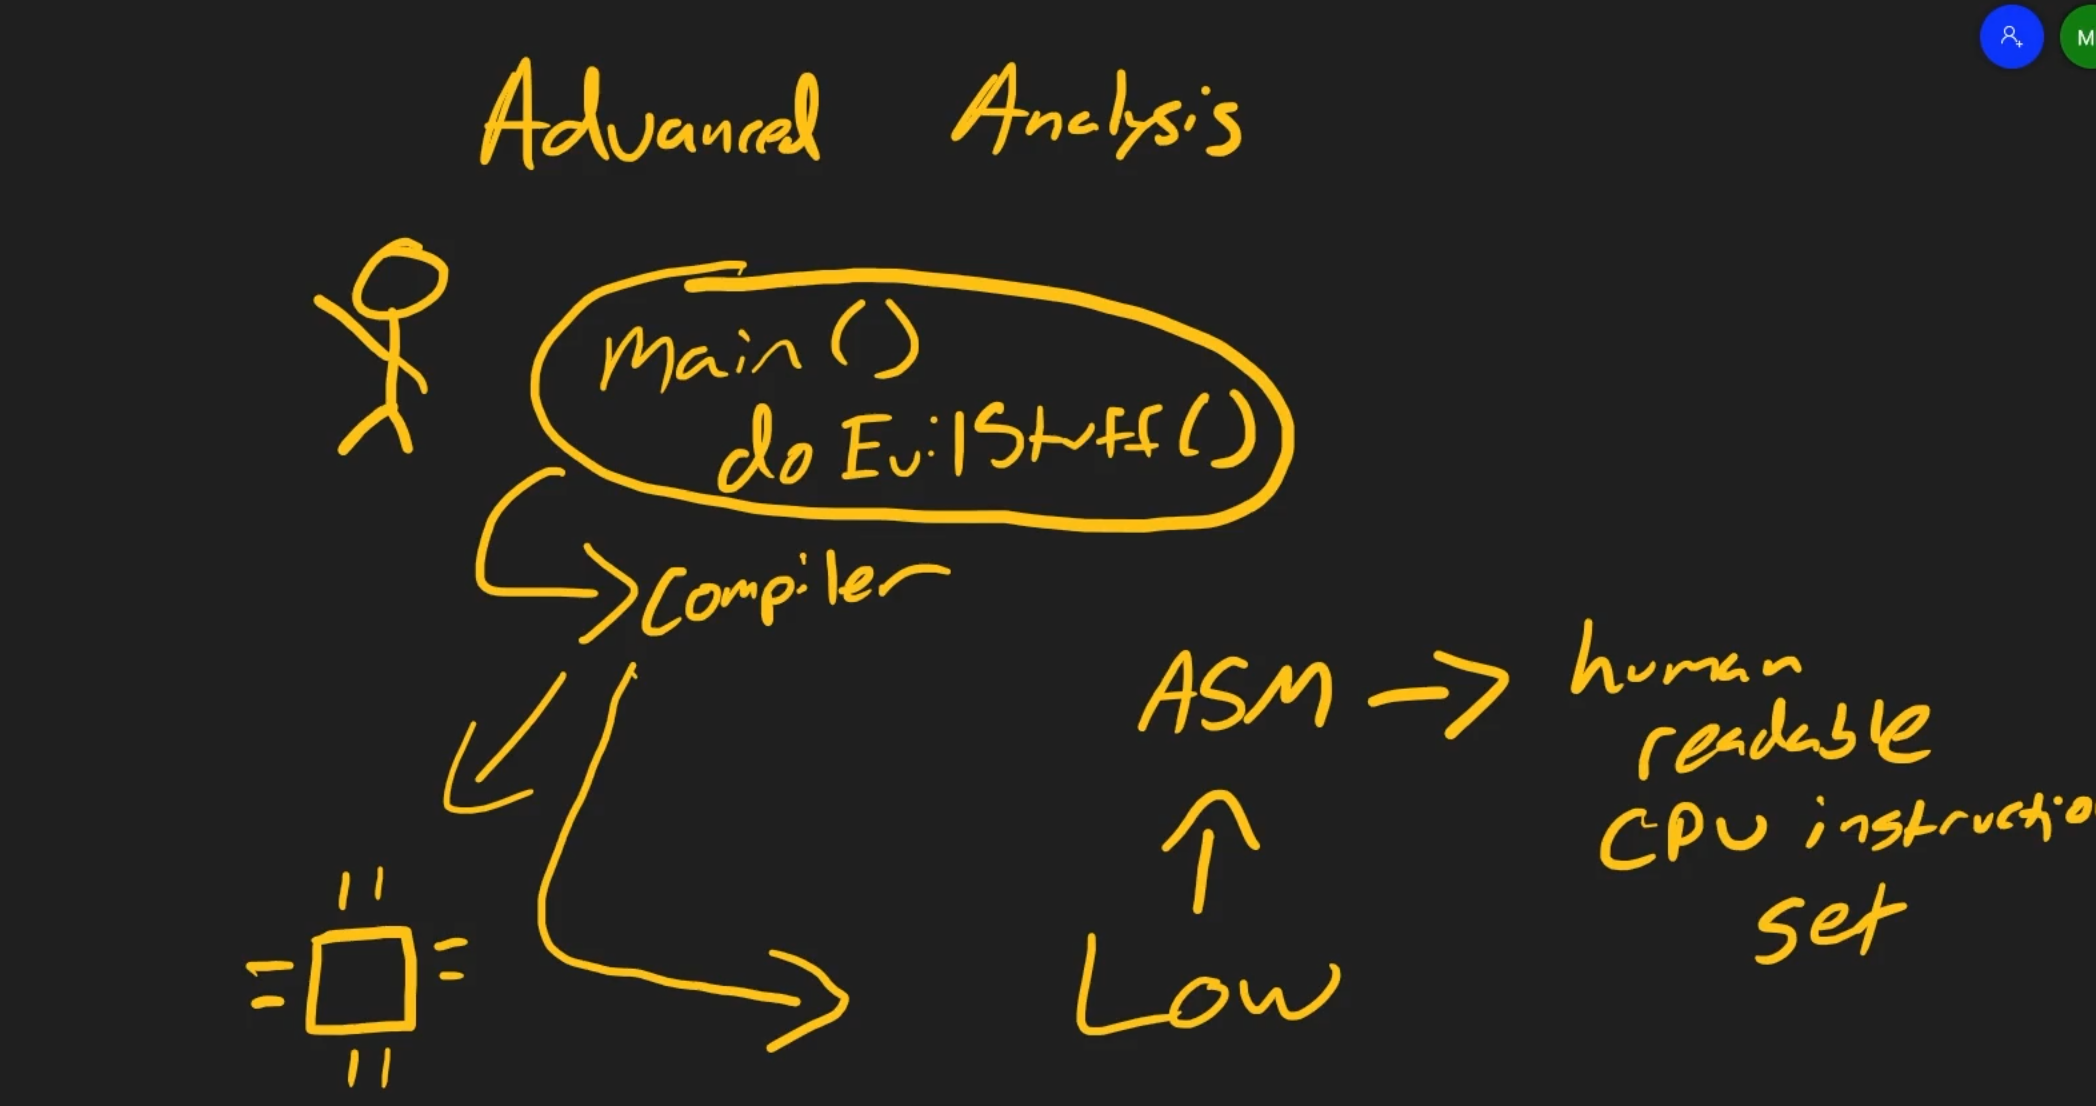 Advanced Analysis
M
main()
doEvilStuff()
compiler
ASM
human
readable
CPU instructio
set
Low